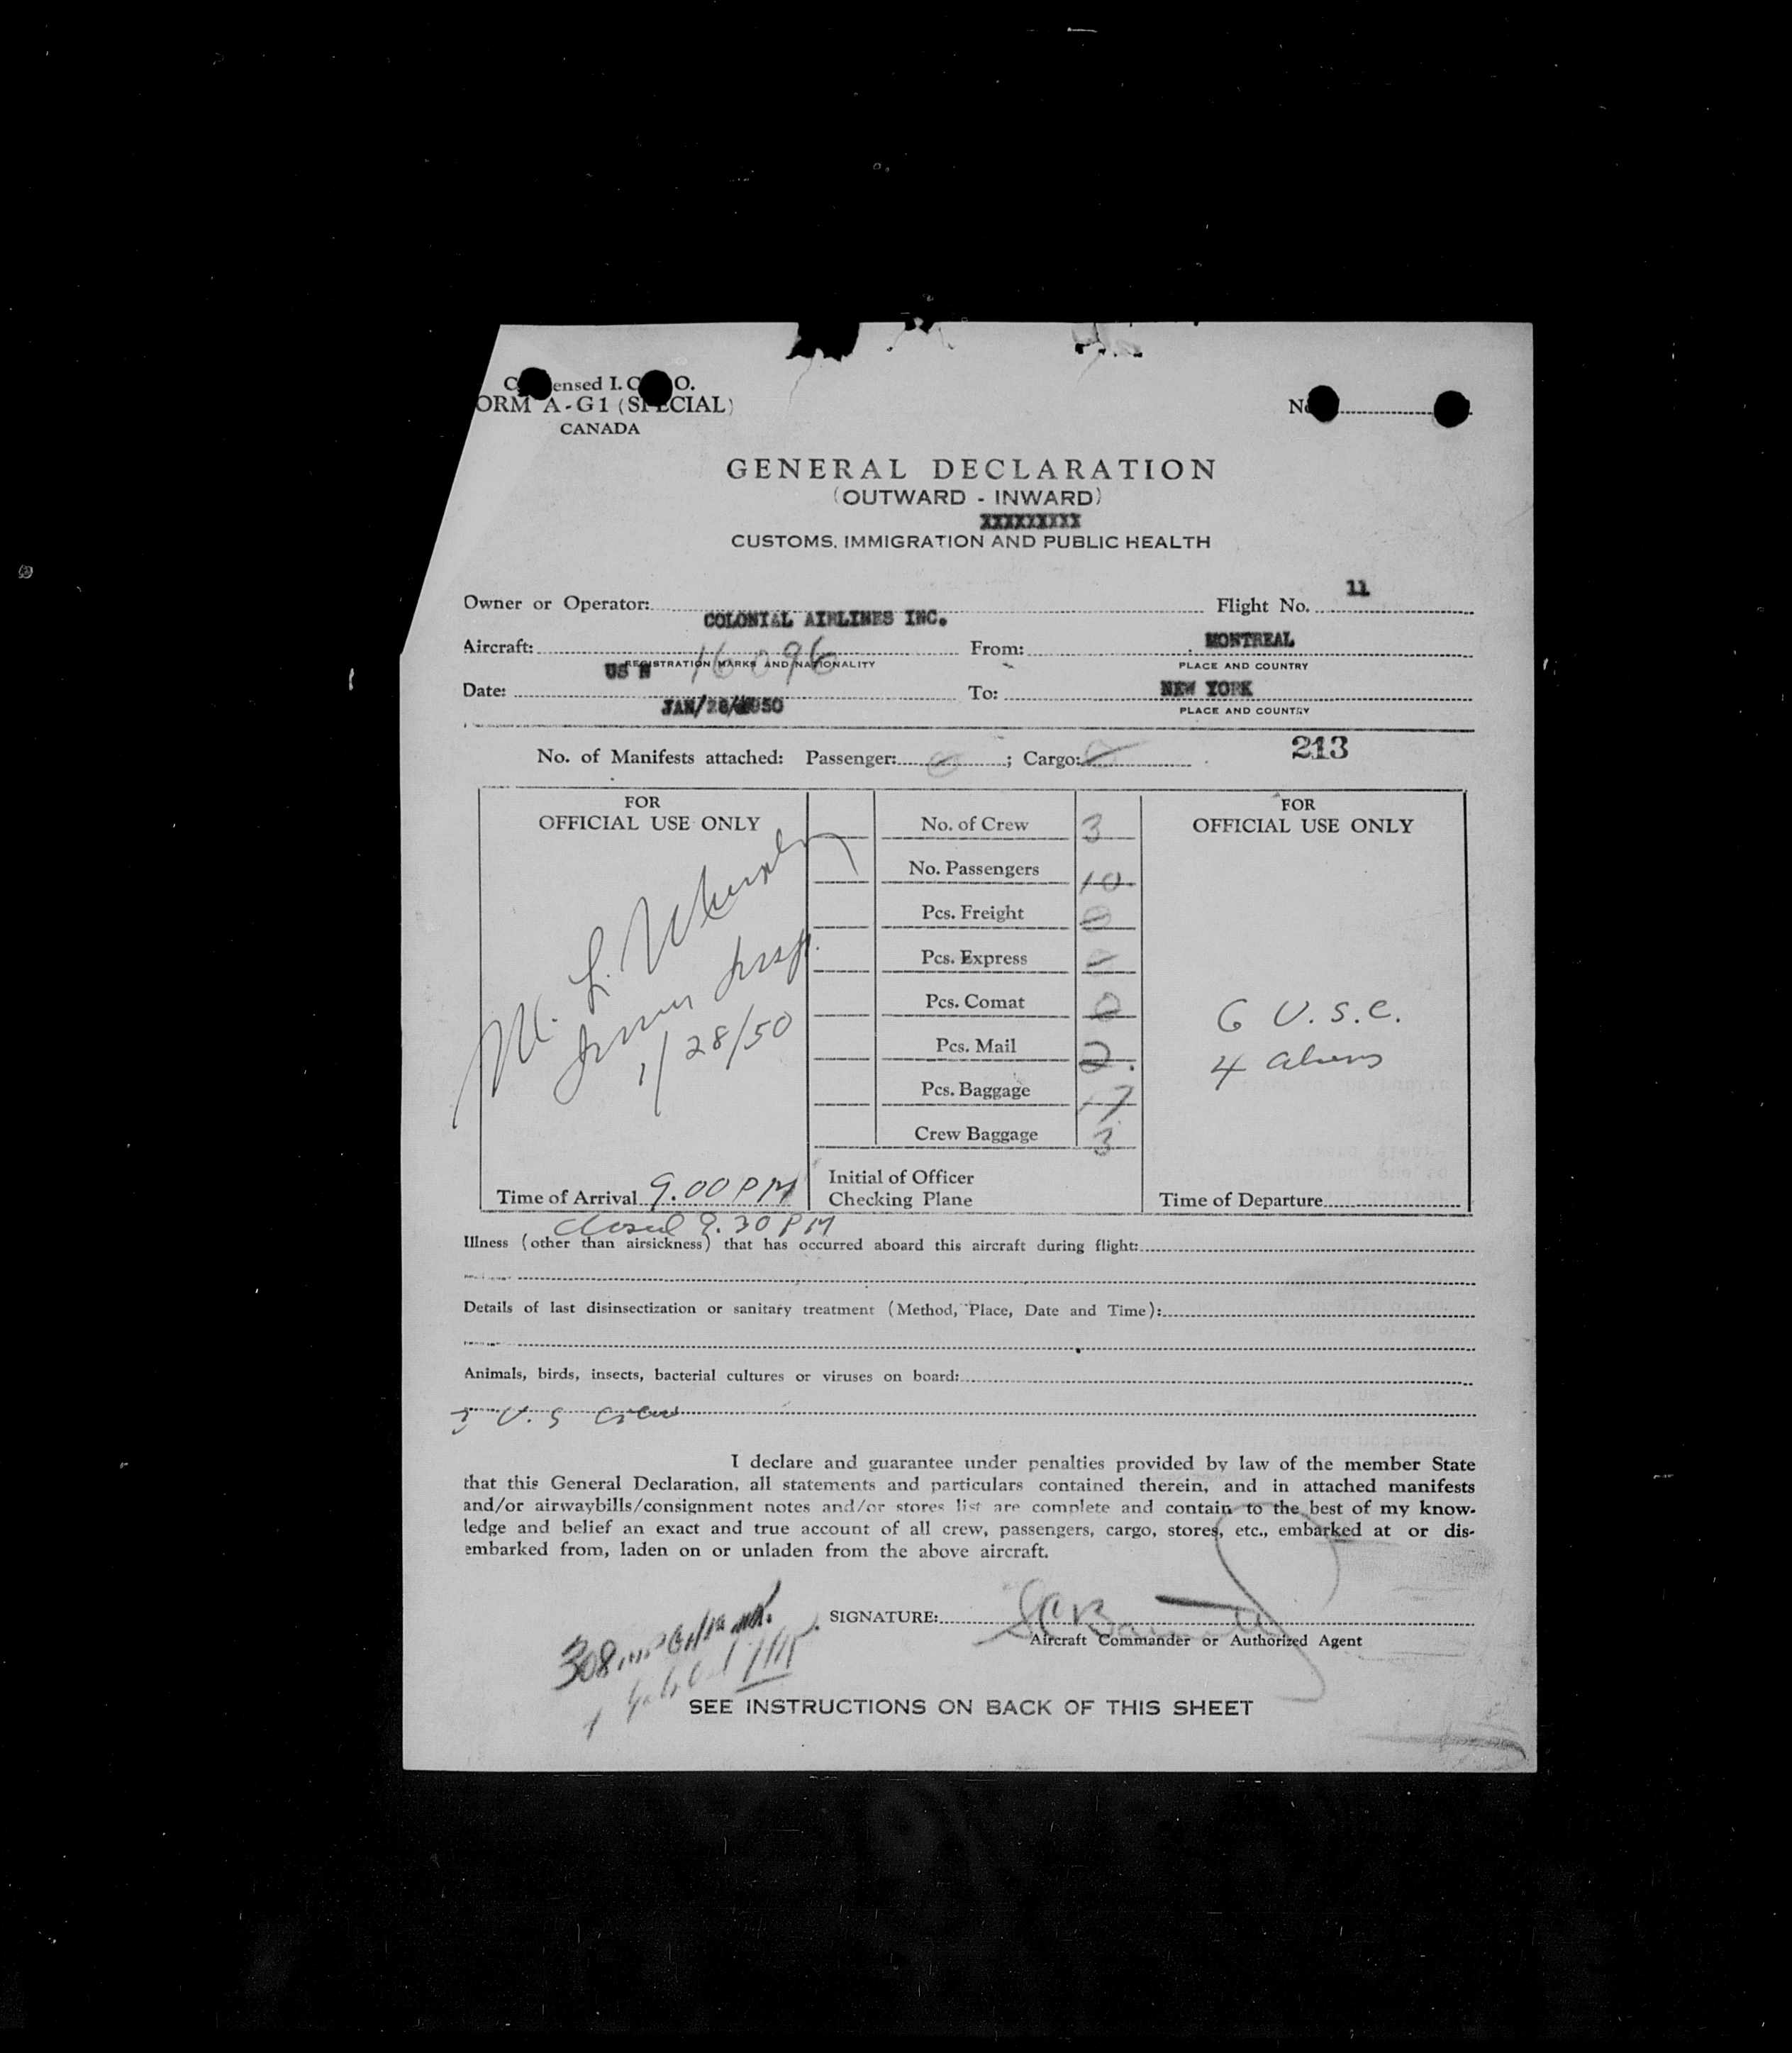 ensed I. C O.
ORM A-G1 (SPECIAL)
CANADA
No
GENERAL DECLARATION
(OUTWARD - INWARD)
XXXXXXXXX
CUSTOMS, IMMIGRATION AND PUBLIC HEALTH
Owner or Operator: COLONIAL AIRLINES INC. Flight No. 11
Aircraft: US N 16096 From: MONTREAL
REGISTRATION MARKS AND NATIONALITY PLACE AND COUNTRY
Date: JAN/28/1950 To: NEW YORK
PLACE AND COUNTRY
No. of Manifests attached: Passenger: 0; Cargo: 0 213
FOR
OFFICIAL USE ONLY
M. L.
Immn Insp.
1/28/50
Time of Arrival 9.00 PM
closed 9.30 PM
No. of Crew 3
No. Passengers 10
Pcs. Freight 0
Pcs. Express
Pcs. Comat 0
Pcs. Mail 2
Pcs. Baggage 17
Crew Baggage 3
Initial of Officer
Checking Plane
FOR
OFFICIAL USE ONLY
6 U.S.C.
4 aliens
Time of Departure
Illness (other than airsickness) that has occurred aboard this aircraft during flight:
Details of last disinsectization or sanitary treatment (Method, Place, Date and Time):
Animals, birds, insects, bacterial cultures or viruses on board:
3 U.S crew
I declare and guarantee under penalties provided by law of the member State
that this General Declaration, all statements and particulars contained therein, and in attached manifests
and/or airwaybills/consignment notes and/or stores list are complete and contain to the best of my know-
ledge and belief an exact and true account of all crew, passengers, cargo, stores, etc., embarked at or dis-
embarked from, laden on or unladen from the above aircraft.
308
SIGNATURE:
Aircraft Commander or Authorized Agent
SEE INSTRUCTIONS ON BACK OF THIS SHEET